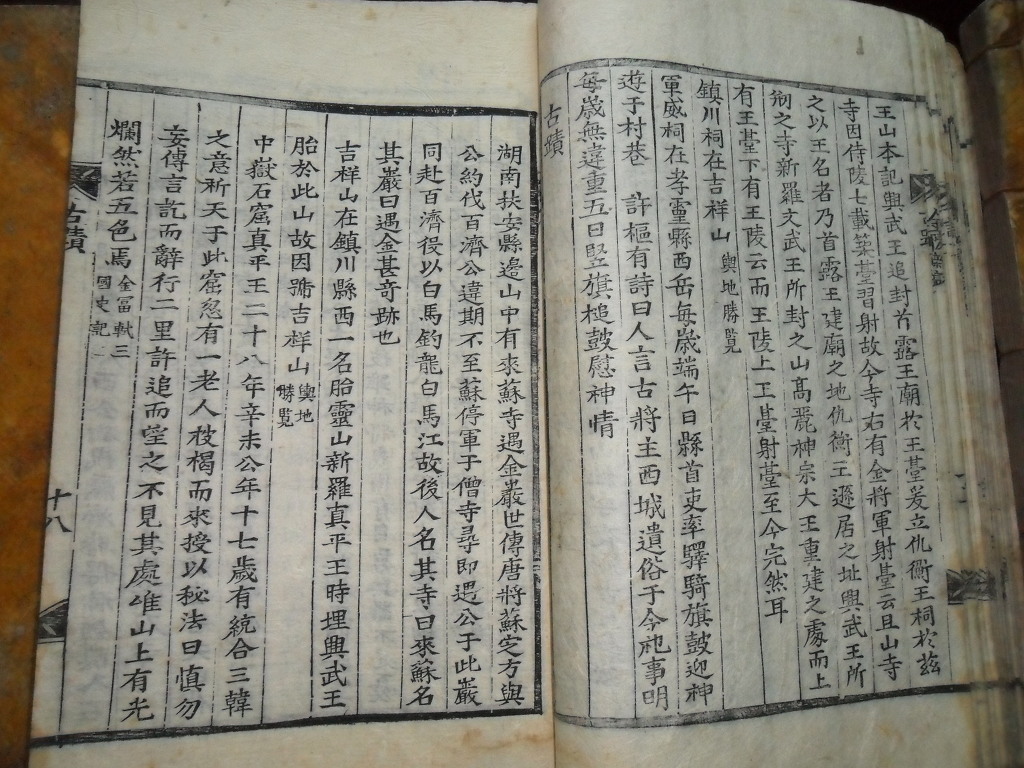 王山本記興武王追封首露王廟於王臺爰立仇衝王祠於玆
寺因侍陵七載築臺習射故今寺右有金將軍射臺云且山寺
之以王名者乃首露王建廟之地仇衝王遜居之址興武王所
刱之寺新羅文武王所封之山高麗神宗大王重建之處而上
有王臺下有王陵云而王陵上王臺射臺至今完然耳
鎮川祠在吉祥山 輿地勝覧
軍威祠在孝靈縣西岳每歳端午日縣首吏率驛騎旗鼓迎神
遊子村巷 許樞有詩曰人言古將主西城遺俗于今祀事明
每歳無違重五日竪旗槌鼓慰神情
古蹟
湖南扶安縣邊山中有來蘇寺遇金巖世傳唐將蘇定方與
公約伐百濟公違期不至蘇停軍于僧寺尋即遇公于此巖
同赴百濟役以白馬釣龍白馬江故後人名其寺曰來蘇名
其巖曰遇金甚奇跡也
吉祥山在鎮川縣西一名胎靈山新羅真平王時埋興武王
胎於此山故因號吉祥山 輿地勝覧
中嶽石窟真平王二十八年辛未公年十七歳有統合三韓
之意祈天于此窟忽有一老人被褐而來授以秘法曰慎勿
妄傳言訖而辭行二里許追而望之不見其處唯山上有光
爛然若五色焉 金富軾三國史記
古蹟
十八